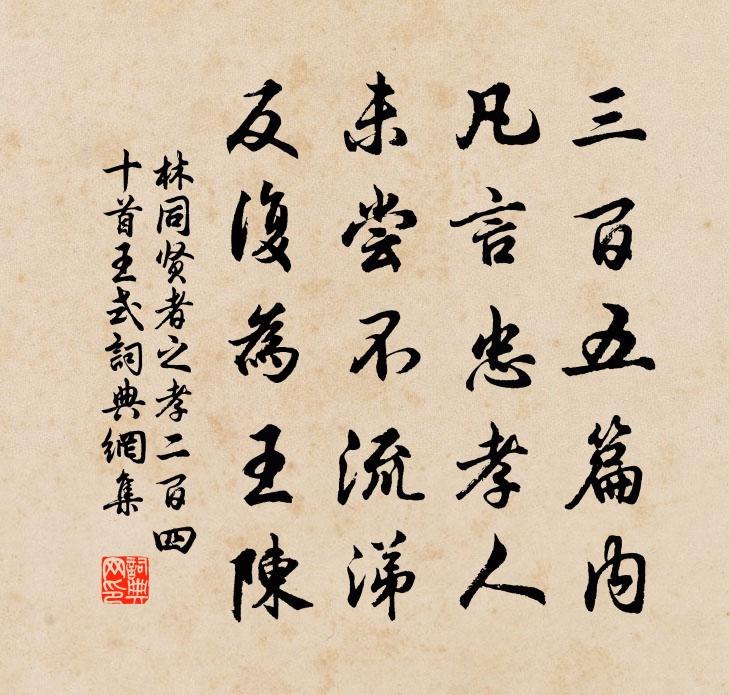 三百五篇内
凡言忠孝人
未尝不流涕
反復為王陳
林同贤者之孝二百四
十首王式詞典網集
詞典
网印